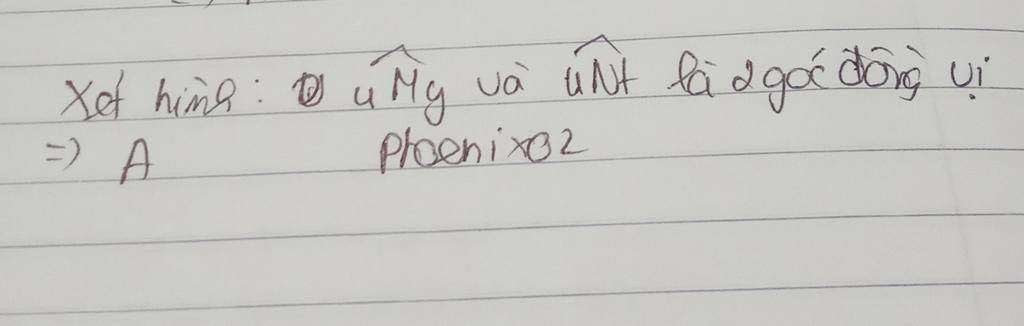 Xét hình: uMy và uNt là 2 góc đồng vị
=> A Phoenix02